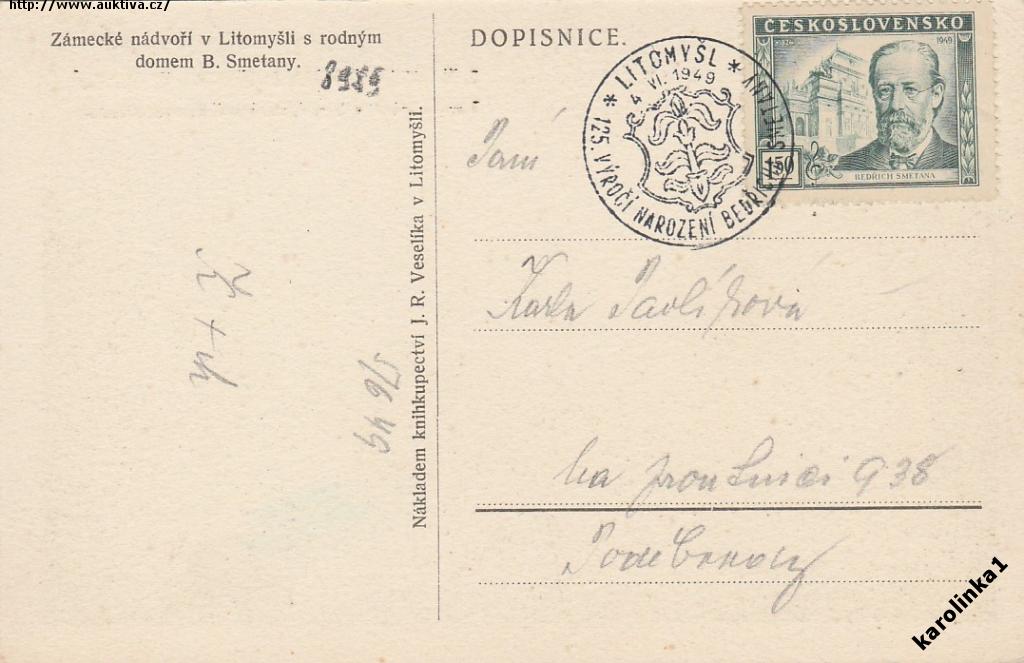 http://www.auktiva.cz/
Zámecké nádvoří v Litomyšli s rodným
domem B. Smetany.
8985
Nákladem knihkupectví J. R. Veselíka v Litomyšli.
5/6 49
DOPISNICE.
* LITOMYŠL *
4 VI. 1949
125. VÝROČÍ NAROZENÍ BEDŘICHA SMETANY
ČESKOSLOVENSKO
1949
1·50
BEDŘICH SMETANA
Paní
Karla Pavlíková
938
Poděbrady
karolinka1